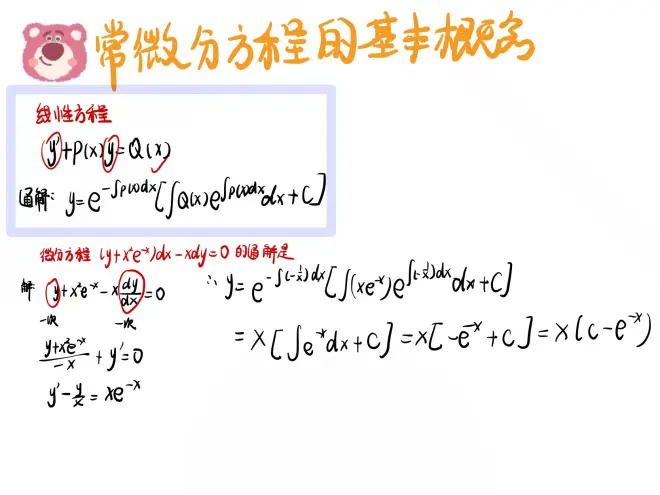 常微分方程的基本概念
线性方程
y'+P(x)y=Q(x)
通解: y=e^{-∫P(x)dx}[∫Q(x)e^{∫P(x)dx}dx+C]
微分方程 (y+x²e^{-x})dx-xdy=0 的通解是
解 y+x²e^{-x}-x\frac{dy}{dx}=0
一次 一次
\frac{y+x²e^{-x}}{-x}+y'=0
y'-\frac{y}{x}=xe^{-x}
∴ y=e^{-∫(-\frac{1}{x})dx}[∫(xe^{-x})e^{∫(-\frac{1}{x})dx}dx+C]
=x[∫e^{-x}dx+C]=x[-e^{-x}+C]=x(c-e^{-x})